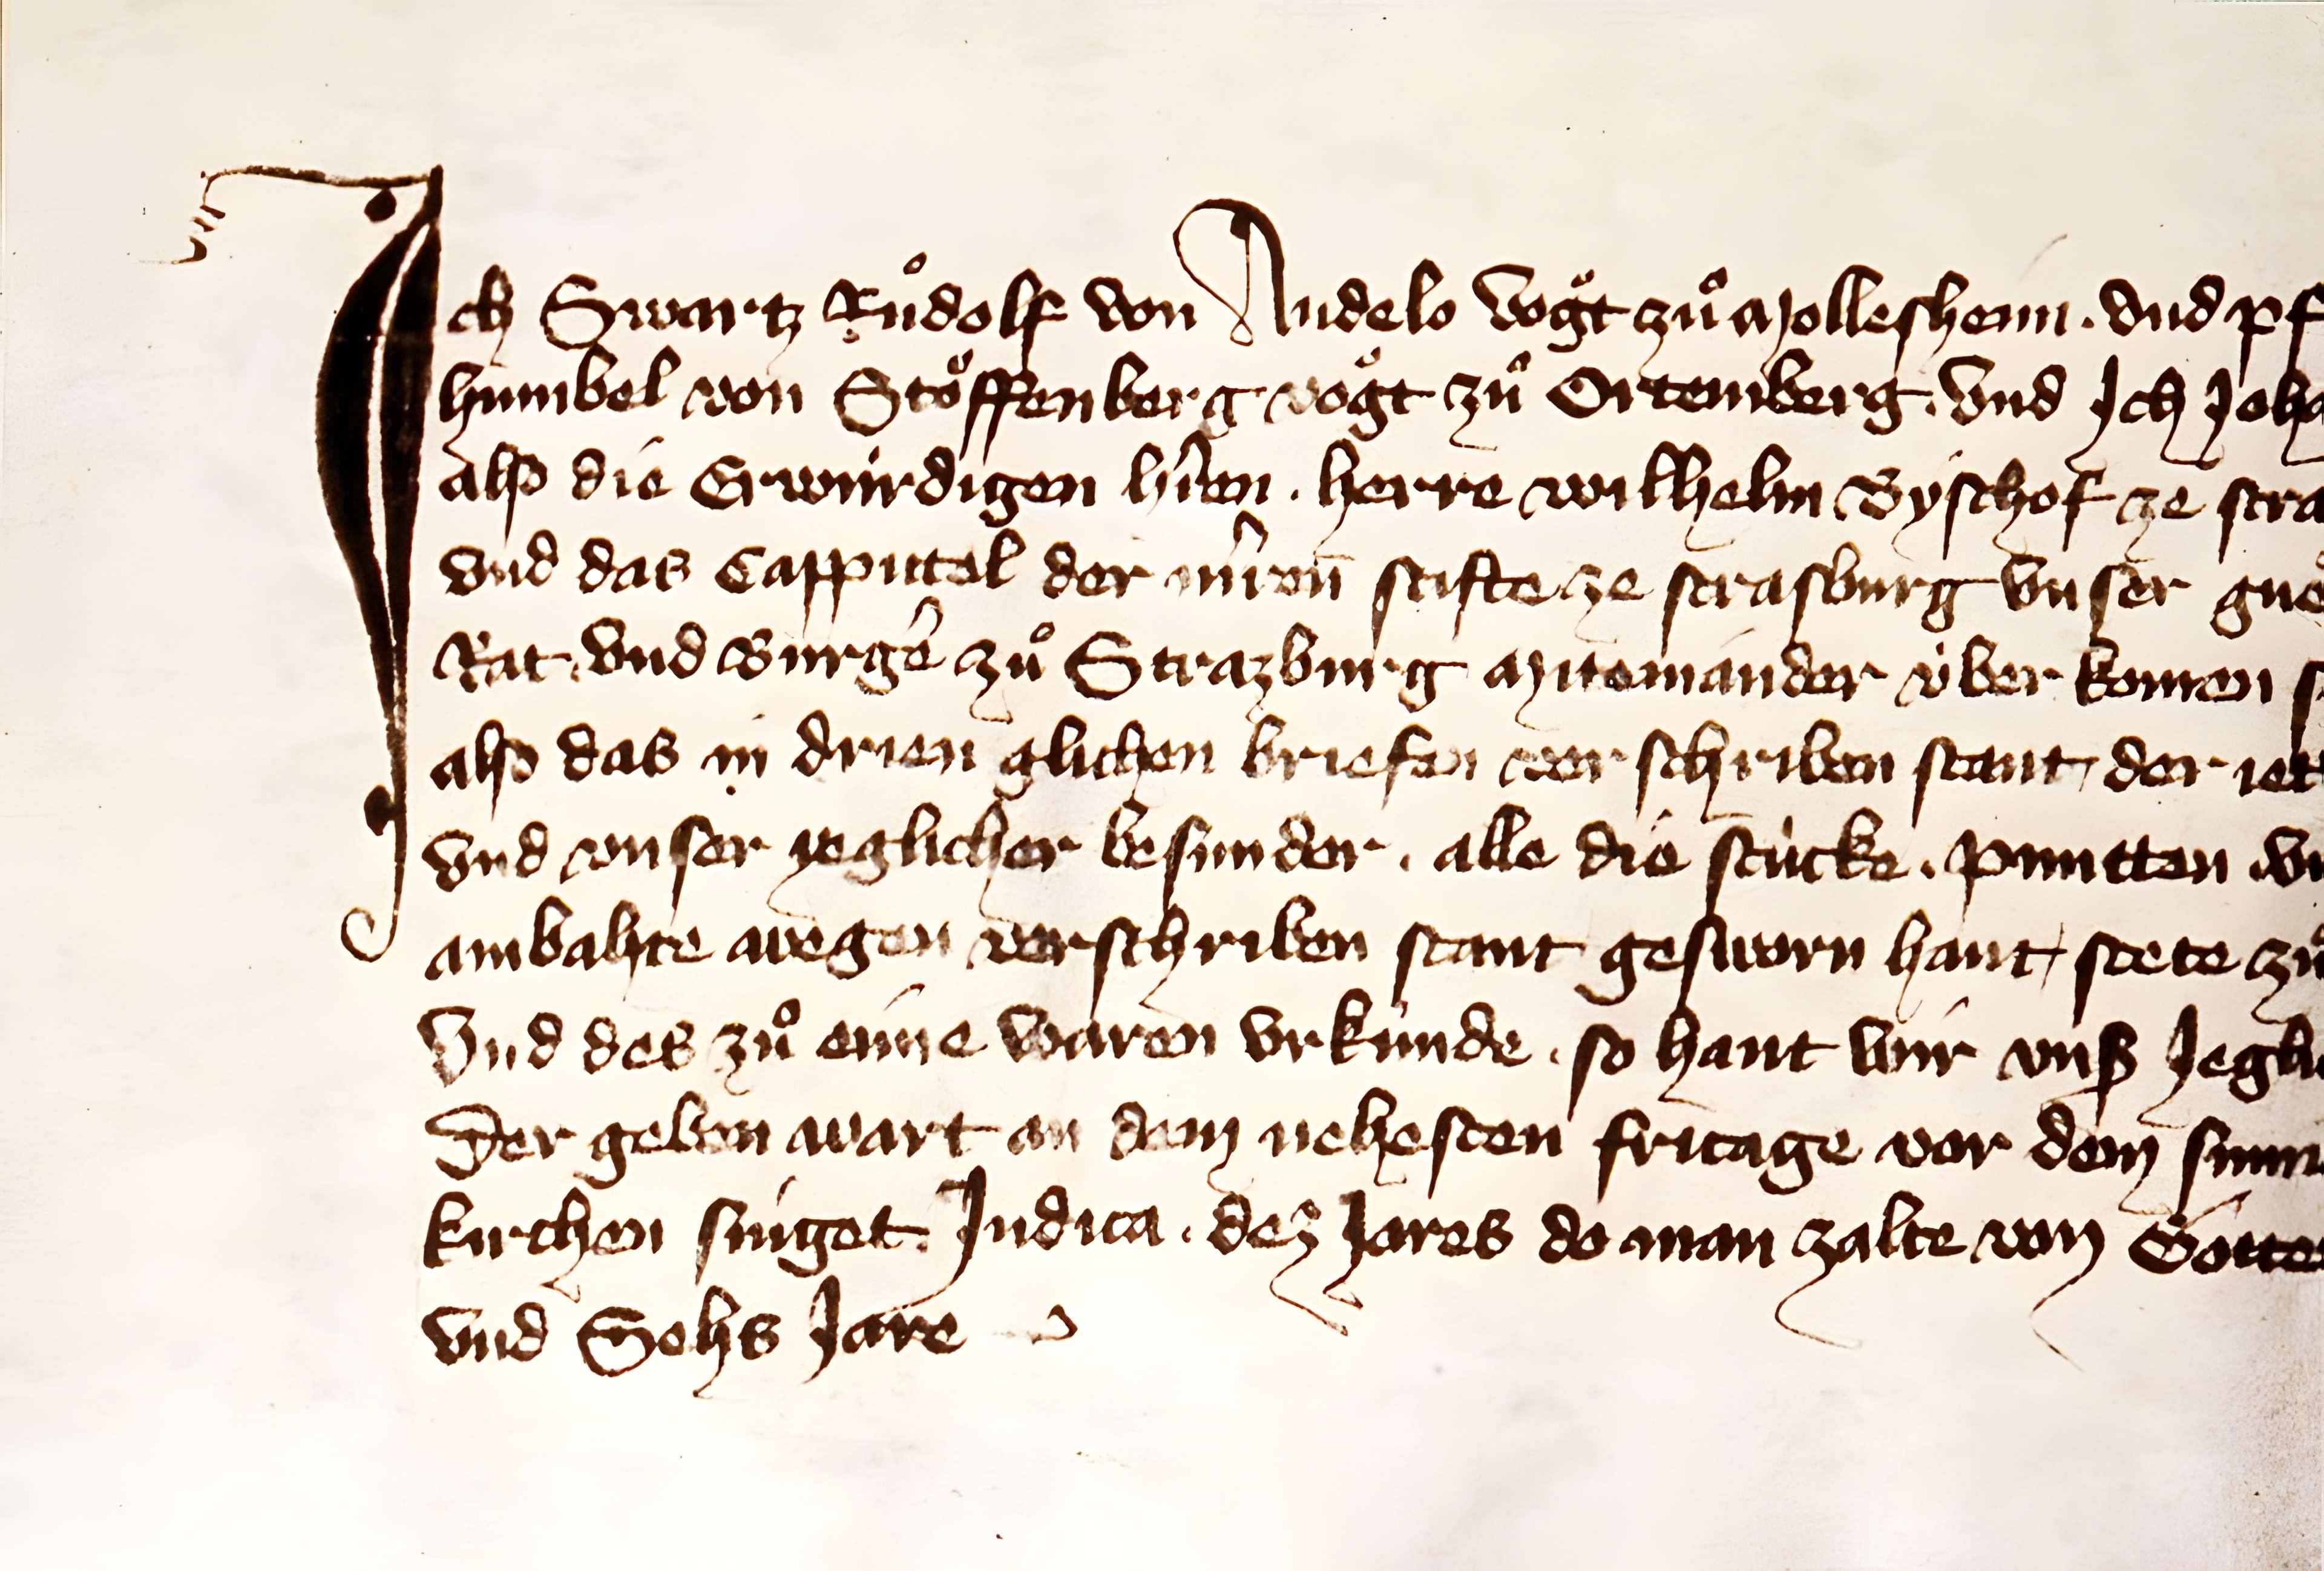 Ich Swartz Růdolf von Andelo vögt zů Mollesheim . vnd pf
humbel von Stöffenberg vogt zů Ortemberg . Vnd Ich Joha
also die Erwúrdigen hr̃en . herre wilhelm Byschof ze stra
vnd das Cappittel der merem̃ stifte ze strasburg vnser gned
Rat . vnd Burgẽ zů Strazburg Miteinander úber komen s
also das in drien glichen briefen verschriben stant der iet
vnd vnser yeglicher besunder . alle die stúcke . puntten vn
ambahte wegen verschriben stant gesworn hant stete zů
Vnd des zů eime waren vrkúnde . so hant wir vnß Jeglic
Der geben wart an dem nehesten fritage vor dem sunn
kirchen singet . Judica . dez Jares do man zalte von Gottes
vnd Sehs Jare